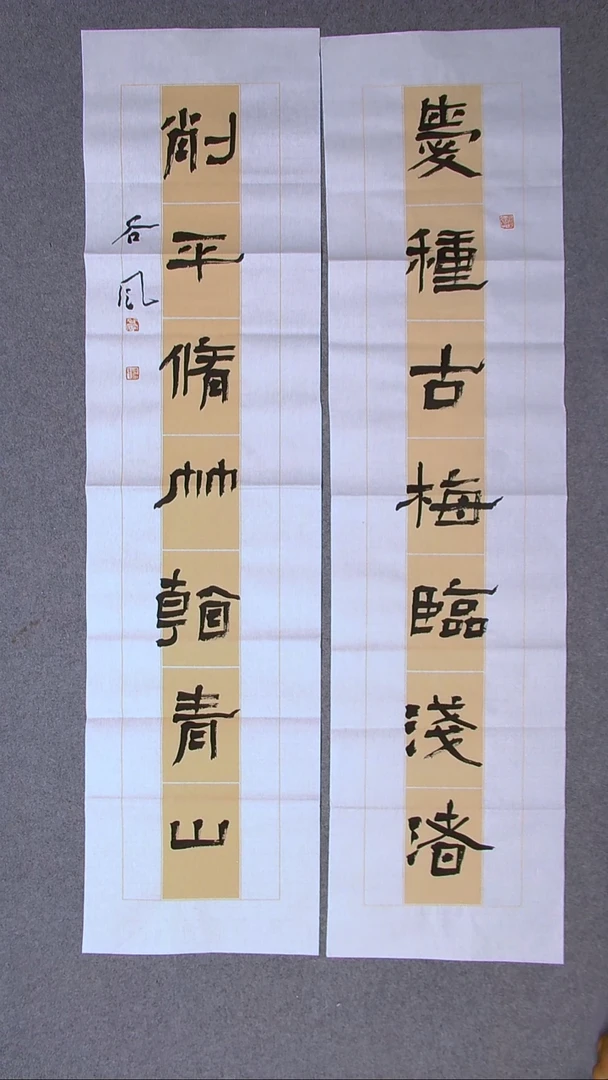 愛種古梅臨淺渚
削平脩竹青山
谷風